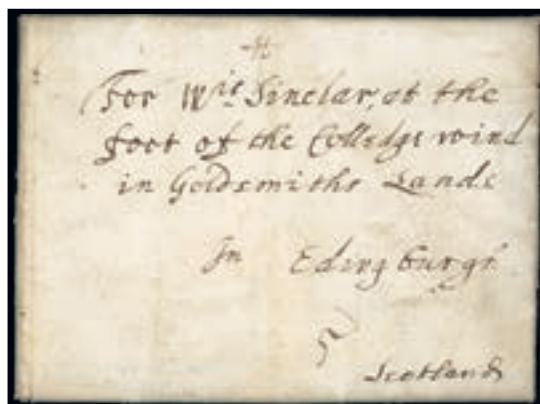 For W^m Sinclar, at the
foot of the Colledge wind
in Goldsmiths Lande
In Edingburgh
5
Scotland